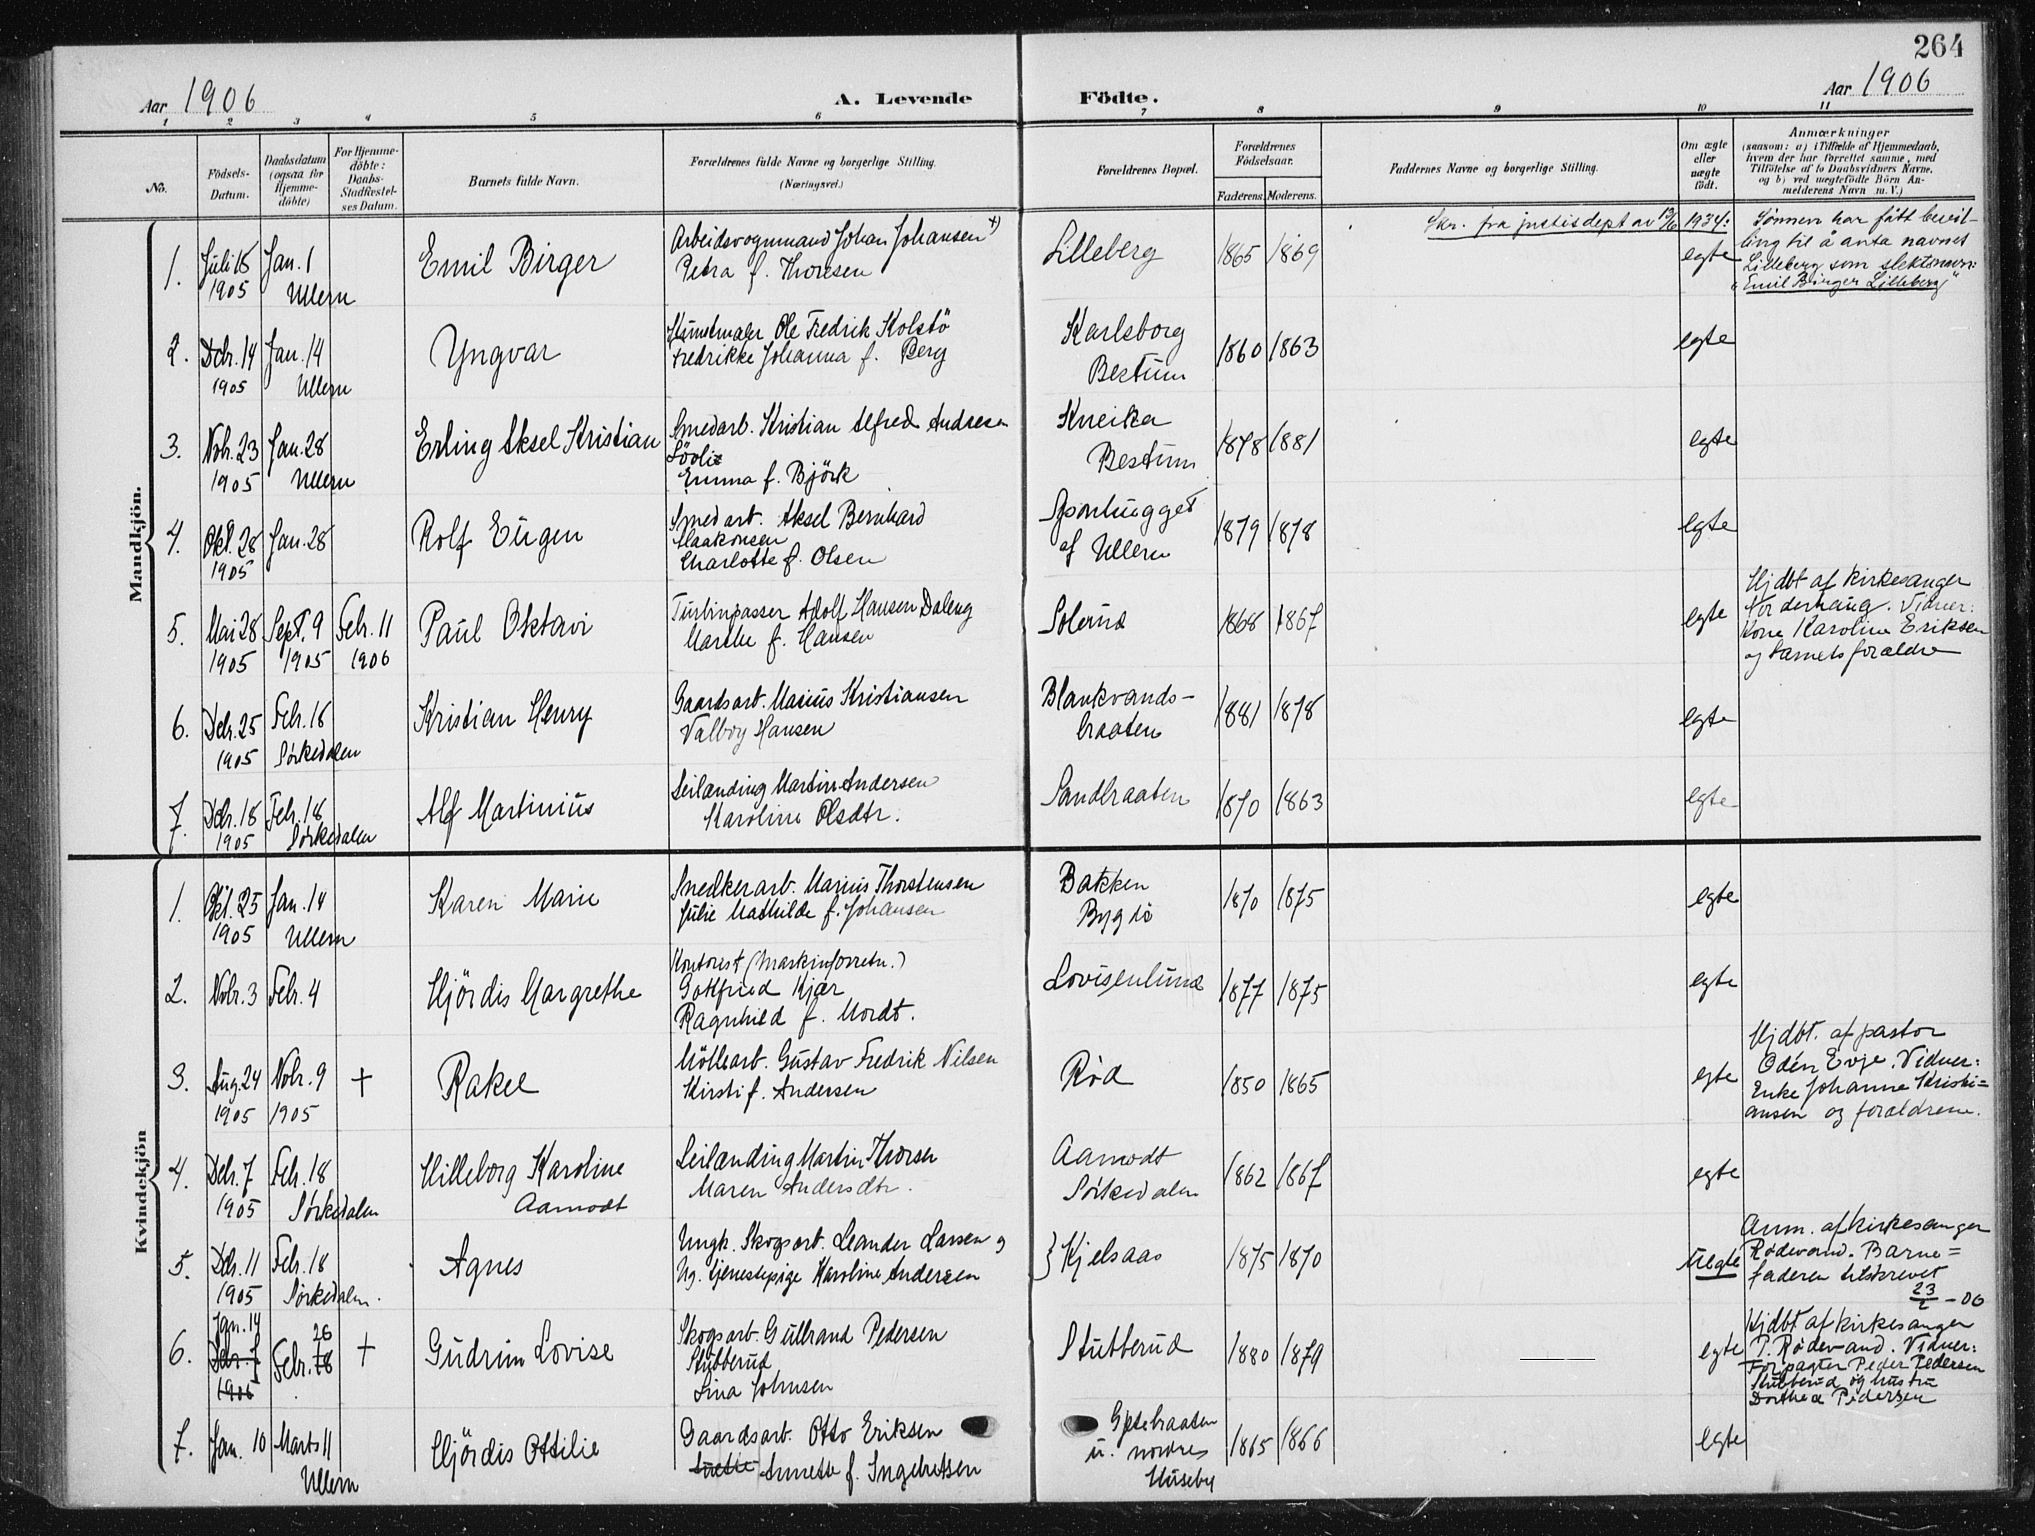 264
Aar 1906
A. Levende
Födte.
Aar 1906
1 2 3 4 5 6 7 8 9 10 11
No.
Födsels-Datum.
Daabsdatum (ogsaa for Hjemme-döbte)
For Hjemme-döbte: Daabs-Stadfæstel-ses Datum.
Barnets fulde Navn.
Forældrenes fulde Navne og borgerlige Stilling. (Næringsvei.)
Forældrenes Bopæl.
Forældrenes Födselsaar.
Faderens. Moderens.
Faddernes Navne og borgerlige Stilling.
Om ægte eller uægte födt.
Anmærkninger
(saasom: a) i Tilfælde af Hjemmedaab, hvem der har forrettet samme, med Tilföielse af to Daabsvidners Navne, og b) ved uægtefödte Börn An-melderens Navn m. V.)
Mandkjön.
1. Juli 15 1905 Jan. 1 Ullern Emil Birger
Arbeidsvognmand Johan Johansen +)
Petra f. Thoresen
Lilleberg 1865 1869 egte
Skr. fra justisdept av 13/6 1934: Sønnen har fått bevil-
ling til å anta navnet
Lilleberg som slektsnavn:
"Emil Birger Lilleberg"
2. Dcbr. 14 1905 Jan. 14 Ullern Yngvar
Kunstmaler Ole Fredrik Kolstö
Fredrikke Johanna f. Berg
Karlsborg
Bestum 1860 1863 egte
3. Nvbr. 23 1905 Jan. 28 Ullern Erling Aksel Kristian
Smedarb. Kristian Alfred Andresen
Emma f. Björk
Kneika
Bestum 1878 1881 egte
4. Okt. 28 1905 Jan. 28 Rolf Eugen
Smedarb. Aksel Bernhard
Haakonsen
Charlotte f. Olsen
Sponhugget
af Ullern 1879 1878 egte
5. Mai 28 1905 Sept. 9 1905 Febr. 11 1906 Paul Oktavi
Turbinpasser Adolf Hansen Daleng
Marthe f. Hansen
Solerud 1868 1867 egte
Hjdbt af kirkesanger
Norderhaug. Vidner:
Kone Karoline Eriksen
og barnets forældre
6. Dcbr. 25 1905 Febr. 18 Sörkedalen Kristian Henry
Gaardsarb. Marius Kristiansen
Valborg Hansen
Blankvands-
braaten 1881 1878 egte
7. Dcbr. 18 1905 Febr. 18 Sörkedalen Alf Martinius
Leilænding Martin Andersen
Karoline Olsdtr.
Sandbraaten 1870 1863 egte
Kvindekjön
1. Okt. 25 1905 Jan. 14 Ullern Karen Marie
Snedkerarb. Marius Thorstensen
Julie Mathilde f. Johansen
Bakken
Bygdö 1870 1875 egte
2. Nvbr. 3 Febr. 4 Hjördis Margrethe
Kontorist (Maskinforretn.)
Gottfried Kjær
Ragnhild f. Mordt.
Lovisenlund 1877 1875 egte
3. Aug. 24 1905 Nvbr. 9 1905 + Rakel
Möllearb. Gustav Fredrik Nilsen
Kirsti f. Andersen
Röd 1850 1865 egte
Hjdbt. af pastor
Odén Evje. Vidner:
Enke Johanne Kristi=
ansen og forældrene.
4. Dcbr. 7 1905 Febr. 18 Sörkedalen Hilleborg Karoline
Aamodt
Leilænding Martin Thorsen
Maren Andersdtr.
Aamodt
Sörkedalen 1862 1867 egte
5. Dcbr. 11 1905 Febr. 18 Sörkedalen. Agnes
Ungk. Skogsarb. Leander Larsen og
Ug. tjenestepige Karoline Andersen
} Kjelsaas 1875 1870 uegte
Anm. af kirkesanger
Rødevand. Barne=
faderen tilskrevet
23/2 – 06
6. Jan. 14 Dcbr. 7 1906 Febr. 18 26 + Gudrun Lovise
Skogsarb. Gulbrand Pedersen
Stubberud
Lina Johnsen
Stubberud 1880 1879 egte
Hjdbt af kirkesanger
P. Rødevand. Vidner:
Forpagter Peder Pedersen
Stubberud og hustru
Dorthea Pedersen
7. Jan. 10 Marts 11 Ullern Hjördis Ottilie
Gaardsarb. Otto Eriksen
Annette f. Ingebretsen
Gjetebraaten
u. nordre
Huseby 1865 1866 egte